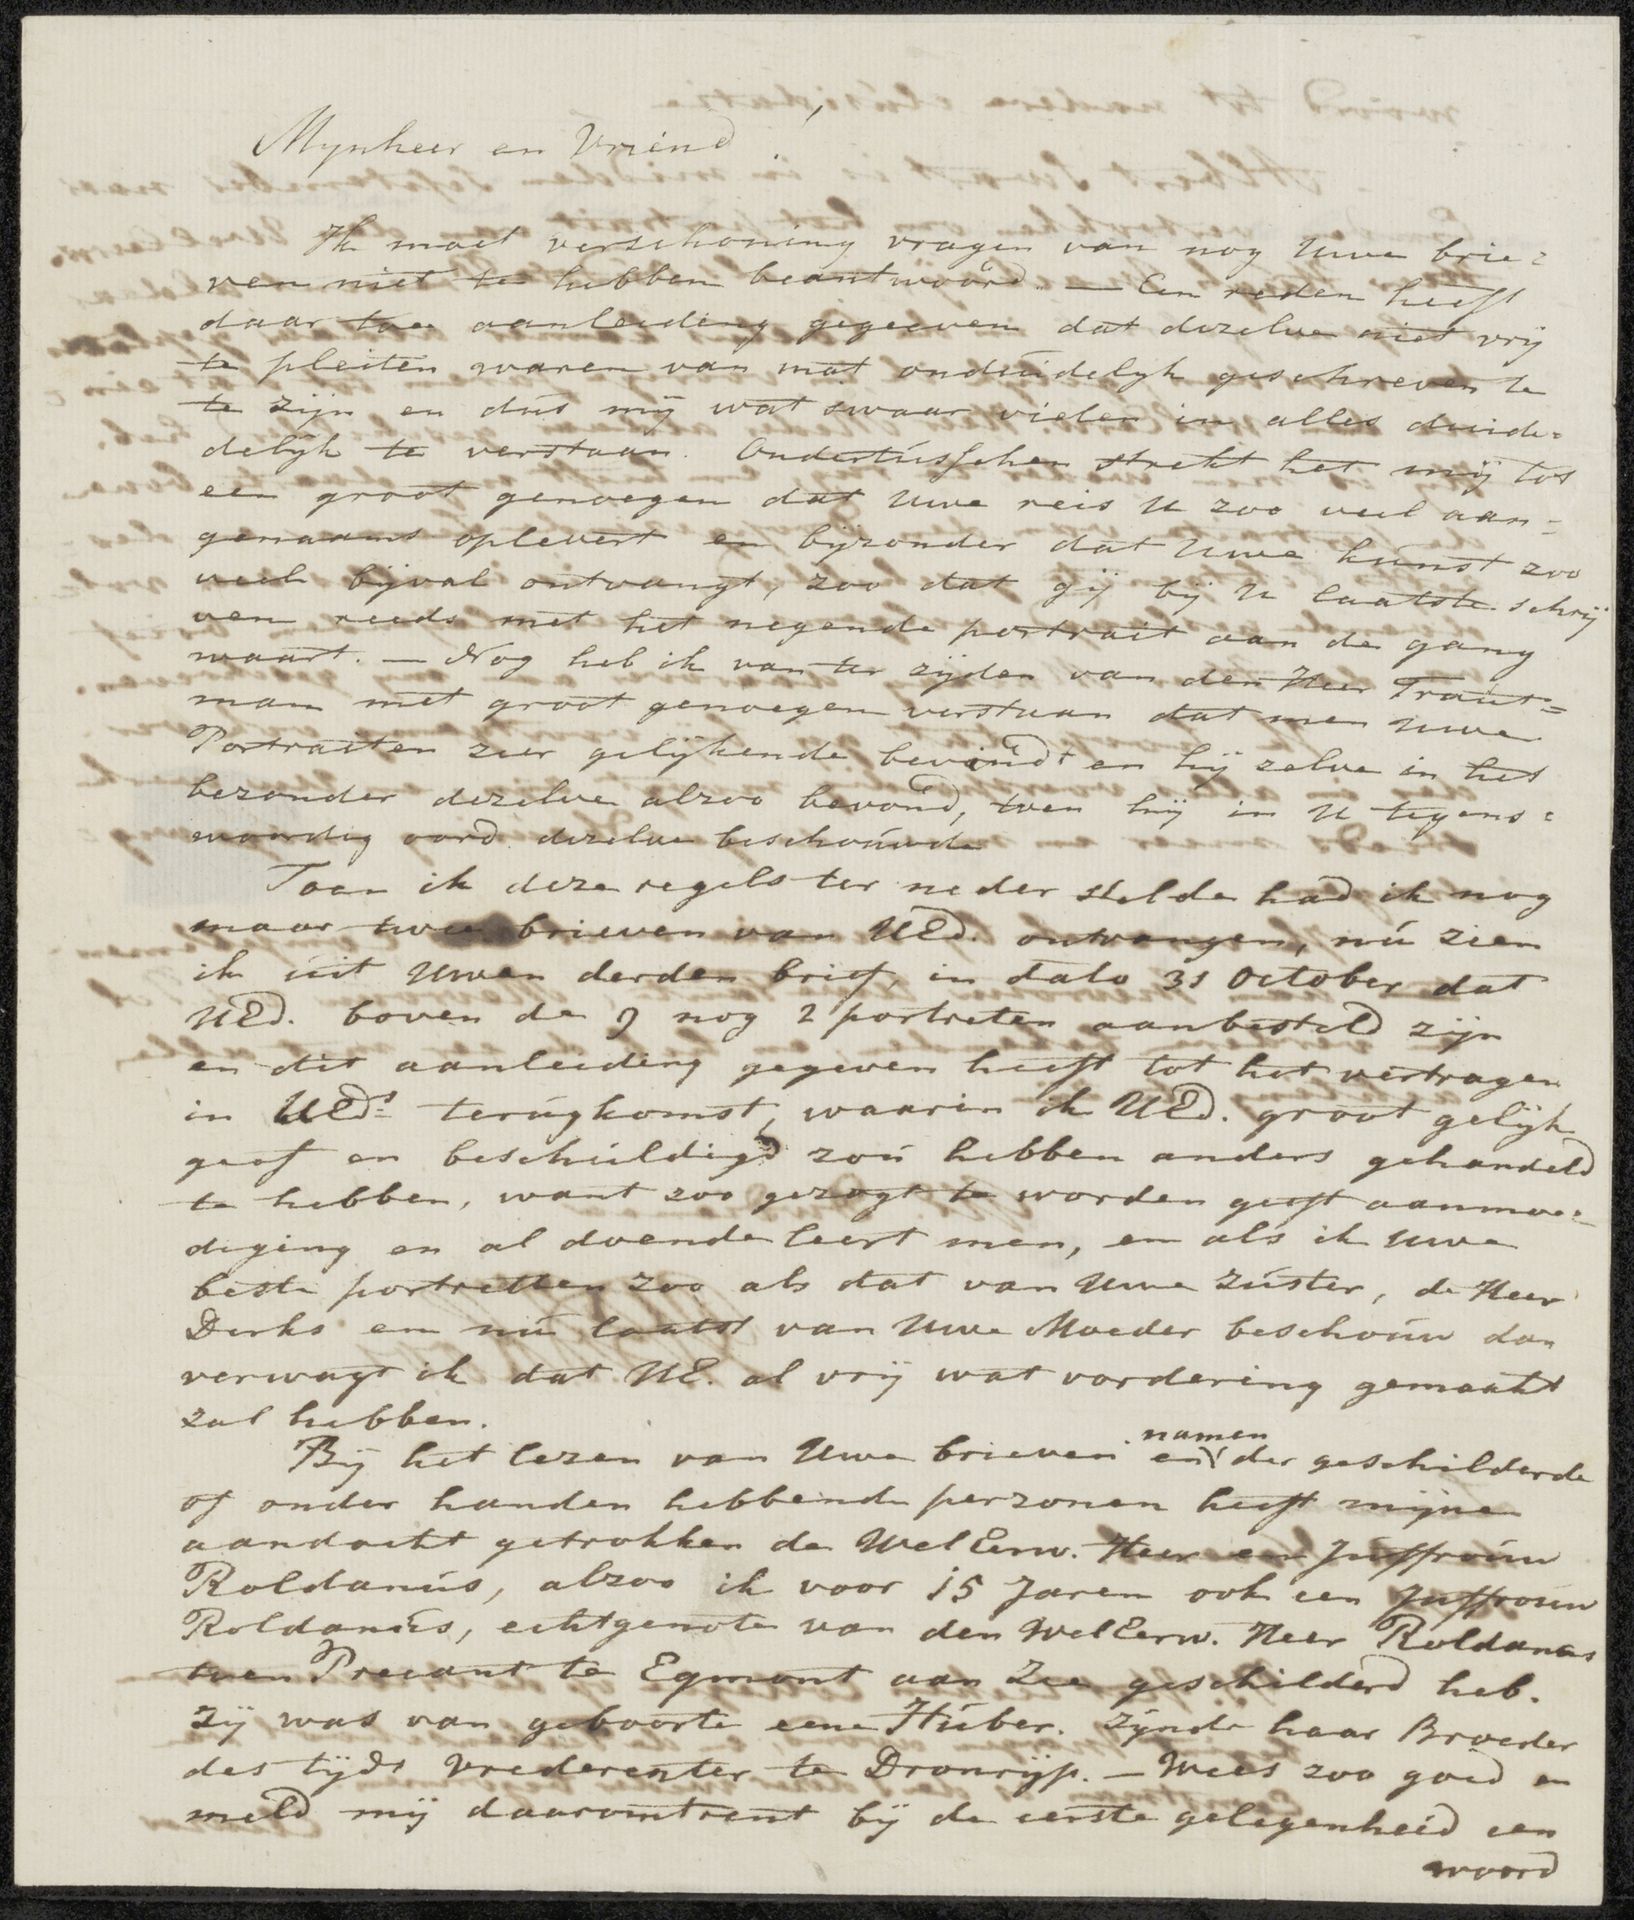 Mynheer en Vriend,
Ik moet verschoning vragen van nog Uwe brie=
ven niet te hebben beantwoord. — Een reden heeft
daar toe aanleiding gegeeven dat dezelve niet vrij
te pleiten waren van wat onduidelyk geschreven te
te zijn en dus mij wat swaar vielen in alles duide=
delijk te verstaan. Ondertusschen strekt het mij tot
een groot genoegen dat Uwe reis U zoo veel aan=
genaams oplevert en bijzonder dat Uwe kunst zoo
veel bijval ontvangt, zoo dat gij bij U laatste schrij
ven reeds met het negende portrait aan de gang
waart. — Nog heb ik van ter zijden van den Heer Traut=
man met groot genoegen verstaan dat men Uwe
Portraiten zeer gelijkende bevindt en hij zelve in het
bezonder dezelve alzoo bevond, toen hij in U tegens=
woordig oord dezelve beschouwde
Toen ik deze regels ter neder stelde had ik nog
maar twee brieven van UEd. ontvangen, nu zien
ik uit Uwen derden brief, in dato 31 October dat
UEd. boven de 9 nog 2 portreten aanbesteld zijn
en dit aanleiding gegeven heeft tot het vertragen
in UEds terugkomst, waarin ik UEd. groot gelijk
geef en beschuldigd zou hebben anders gehandeld
te hebben, want zoo gezogt te worden geeft aanmoe=
diging en al doende leert men, en als ik Uwe
beste portretten zoo als dat van Uwe Zuster, de Heer
Derks en nu laatst van Uwe Moeder beschouw dan
verwagt ik dat UE. al vrij wat vordering gemaakt
zal hebben.
Bij het lezen van Uwe brieven en namen der geschilderde
of onder handen hebbende perzonen heeft mijne
aandacht getrokken de WelEerw. Heer en Juffrouw
Roldanus, alzoo ik voor 15 Jaren ook een Juffrouw
Roldanus, echtgenote van den WelEerw. Heer Roldanus
toen Precant te Egmont aan Zee geschilderd heb.
Zij was van geboorte eene Huber. Zijnde haar Broeder
des tijds Vrederegter te Dronrijp. — Wees zoo goed en
meld mij daaromtrent bij de eerste gelegenheid een
woord